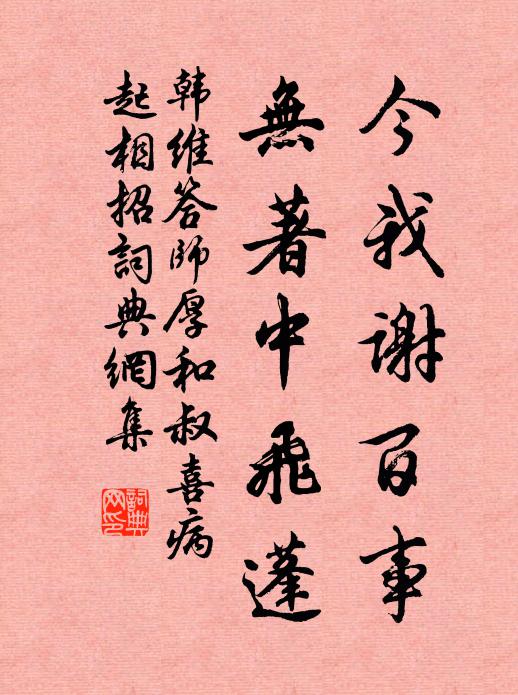 今我谢百事
無著中飛蓬
韩維答師厚和叔喜病
起相招詞典網集
詞典网印